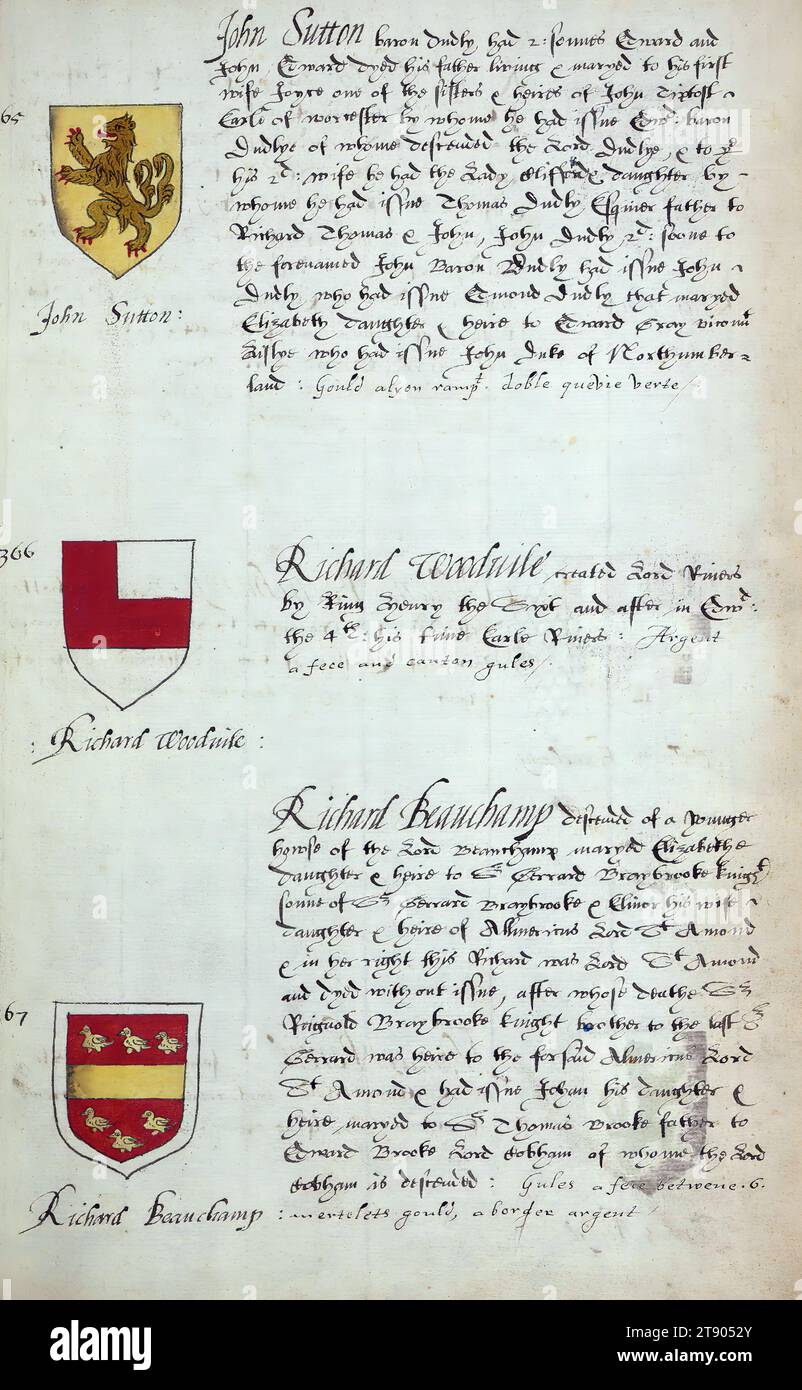 John Sutton baron Dudly, had 2: sonnes Edward and
John, Edward dyed his father living & maryed to his first
wife Joyce one of the sisters & heires of John Tiptoft
Earle of worcester by whome he had issue Edw: baron
Dudlye of whome descended the Lord Dudlye, & to
his 2d: wife he had the Lady Clifford daughter by
whome he had issue Thomas Dudly Esquier father to
Richard Thomas & John, John Dudly 2d: sonne to
the forenamed John Baron Dudly had issue John
Dudly who had issue Edmond Dudly that maryed
Elizabeth daughter & heire to Edward Gray vicont
Lislye who had issue John Duke of Northumber=
land: Gould a lyon rampt. doble quevie verte /
65
John Sutton:
366
Richard Woodvile, created Lord Rivers
by King Henry the Sixt and after in Edwd:
the 4th: his time Earle Rivers: Argent
a fece and canton gules /.
: Richard Woodvile :
Richard Beauchamp descended of a younger
howse of the Lord Beauchamp maryed Elizabethe
daughter & heire to Sr Gerrard Braybrooke knight
sonne of Sr Gerrard Braybrooke & Elinor his wife
daughter & heire of Allmericus Lord St Amond
& in her right this Richard was Lord St Amond
and dyed without issue, after whose deathe Sr
Reignold Braybrooke knight brother to the last Sr
Gerrard was heire to the forsaid Almericus Lord
St Amond & had issue Johan his daughter &
heire, maryed to Sr Thomas Brooke father to
Edward Brooke Lord Cobham of whome the Lord
Cobham is descended: Gules a fece betwene .6.
: mertelets gould, a border argent /
67
Richard Beauchamp
alamy
Image ID: 2T9052Y
www.alamy.com